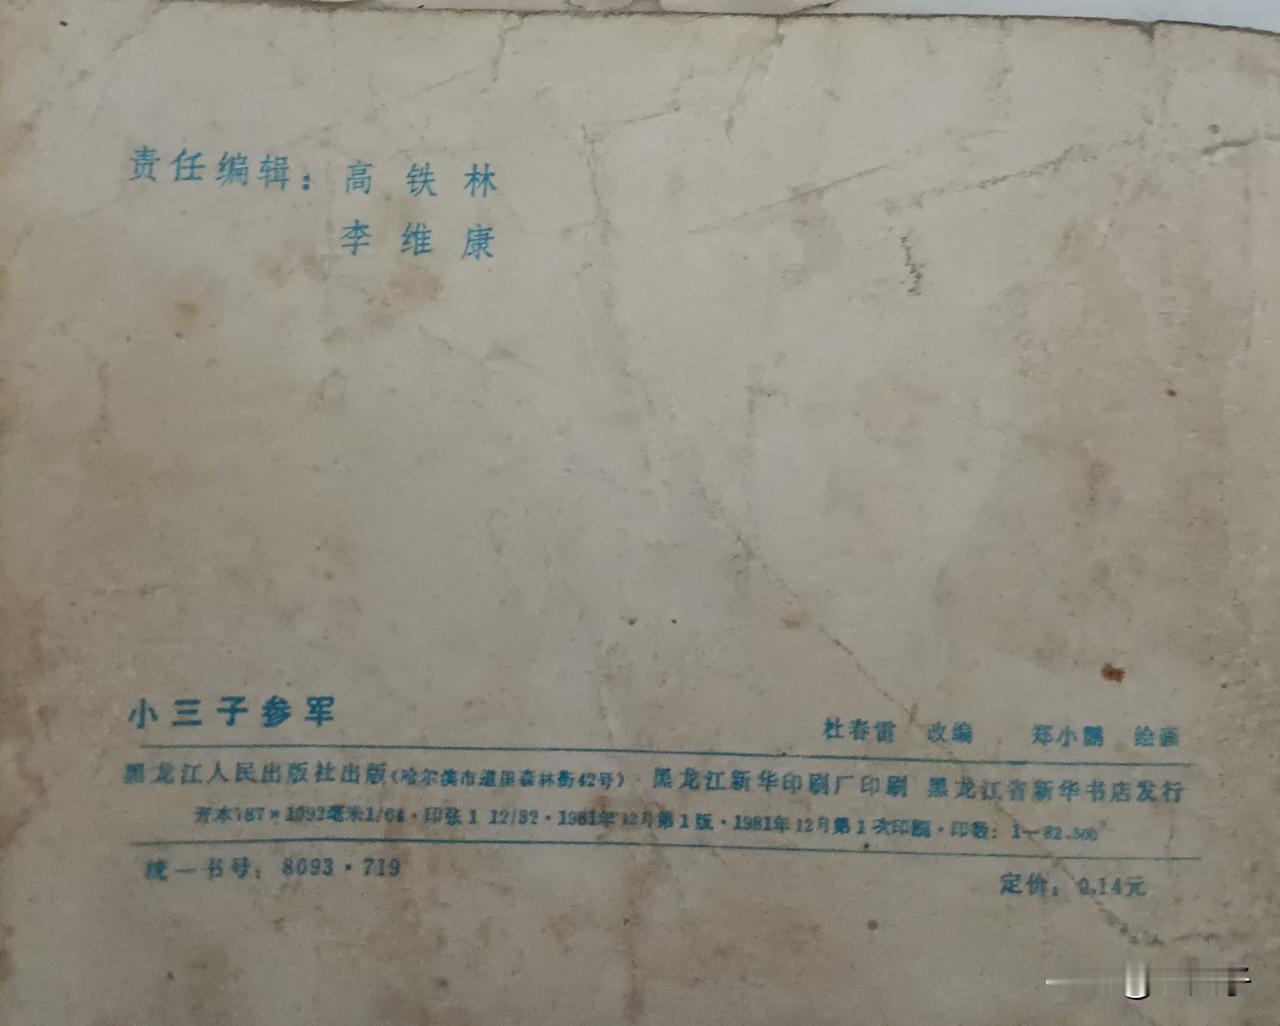 责任编辑：高铁林
李维康
小三子参军
杜春雷 改编 郑小鹏 绘画
黑龙江人民出版社出版（哈尔滨市道里森林街42号）· 黑龙江新华印刷厂印刷 黑龙江省新华书店发行
开本787×1092毫米1/64·印张1 12/32·1981年12月第1版·1981年12月第1次印刷·印数：1—82,500
统一书号：8093·719
定价：0.14元